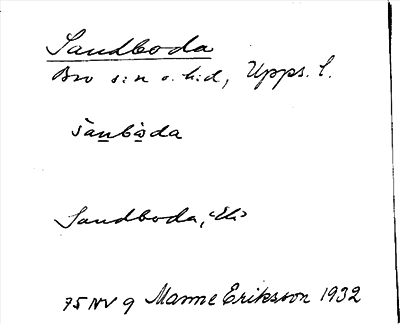 Sandboda
Bro s:n o. h:d, Upps. l.
sànbòda
Sandboda, ‹El›
75 NV 9 Manne Eriksson 1932